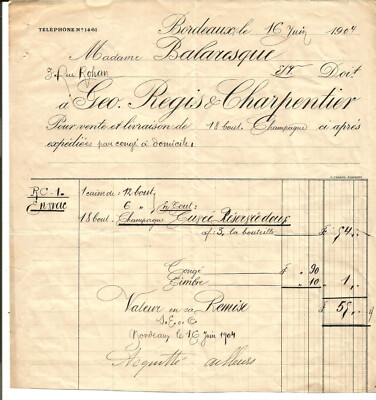 TÉLÉPHONE No 1461
Bordeaux, le 16 Juin 1904
Madame Balaresque
3, Rue Rohan Doit
à Geo. Regis & Charpentier
Pour vente et livraison de 18 bout. Champagne ci après
expédiées par congé à domicile:
RC-1- 1 caisse de 12 bout.
6 " En tout:
18 bout. Champagne Cuvée Réservée doux
à f: 3, la bouteille $ 54,--
Congé $ " 90
Timbre " 10 " 1,
Valeur en sa Remise $ 55,--
S.E. & O
Bordeaux le 16 Juin 1904
Acquitté ailleurs